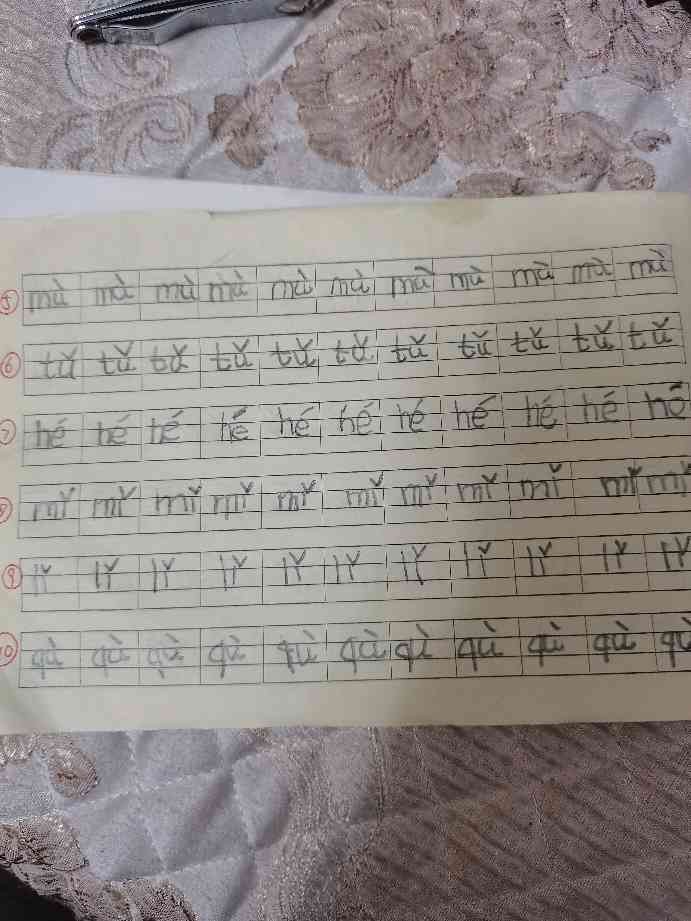 ⑤ mù mù mù mù mù mù mù mù mù mù mù
⑥ tǔ tǔ tǔ tǔ tǔ tǔ tǔ tǔ tǔ tǔ tǔ
⑦ hé hé hé hé hé hé hé hé hé hé hé
⑧ mǐ mǐ mǐ mǐ mǐ mǐ mǐ mǐ mǐ mǐ mǐ
⑨ lǐ lǐ lǐ lǐ lǐ lǐ lǐ lǐ lǐ lǐ lǐ
⑩ qù qù qù qù qù qù qù qù qù qù qù